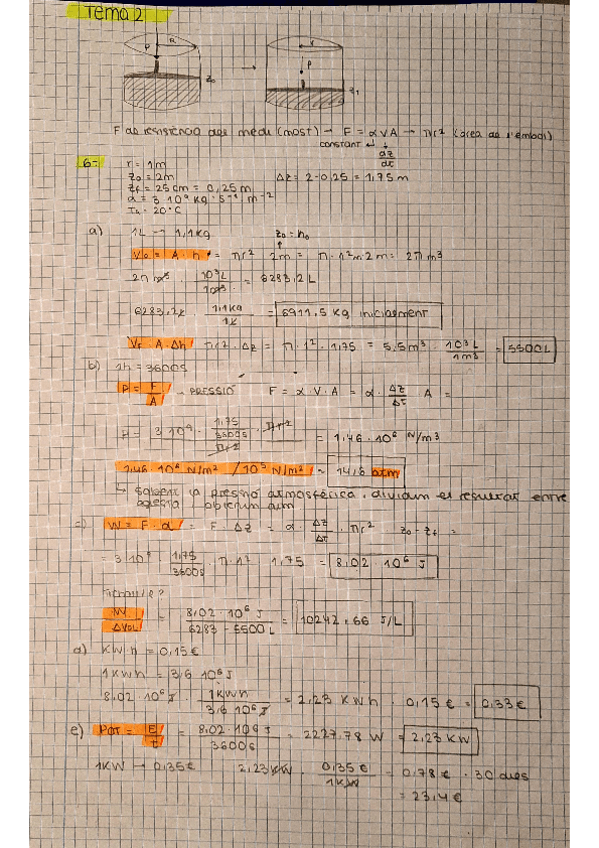 Tema 2
P R
z₀
→
r
P
z₁
F de resistència del medi (most) → F = α V A → πr² (àrea de l'èmbol)
constant ↵ ↓
dz
dt
6-
r = 1m
z₀ = 2m Δz = 2-0,25 = 1,75 m
zf = 25 cm = 0,25 m
α = 3·10⁹ kg·s⁻¹ m⁻²
T₀ = 20°C
a) 1L → 1,1kg z₀ = h₀
V₀ = A · h = πr² 2m = π·1²m·2m = 2π m³
2π m³ · 10³L / 1m³ = 6283,2 L
6283,2L · 1,1kg / 1L = 6911,5 kg inicialment
VF A·Δh πr²·Δz = π·1²·1,75 = 5,5m³ · 10³ L / 1m³ = 5500L
b) 1h = 3600s
P = F / A → PRESSIÓ F = α V·A = α · Δz / Δt A =
P = 3·10⁹ · 1,75 / 3600s · πr² / πr² = 1,46·10⁶ N/m²
1,46·10⁶ N/m² / 10⁵ N/m² = 14,6 atm
↳ sabent la pressió atmosfèrica, dividim el resultat entre
aquesta i obtenim atm
c) W = F · d = F · Δz = α · Δz / Δt · πr² z₀ - zf =
= 3·10⁹ 1,75 / 3600s · π·1² 1,75 = 8,02·10⁶ J
W / ΔVOL = 8,02·10⁶ J / 6283 - 5500L = 10242,66 J/L
d) KW·h = 0,15€
1KWh = 3,6·10⁶ J
8,02·10⁶ J · 1KWh / 3,6·10⁶ J = 2,23 KWh · 0,15€ = 0,33€
e) POT = E / t = 8,02·10⁶ J / 3600s = 2227,78 W = 2,23 KW
1KW → 0,35€ 2,23KW · 0,35€ / 1KW = 0,78€ · 30 dies
= 23,4€